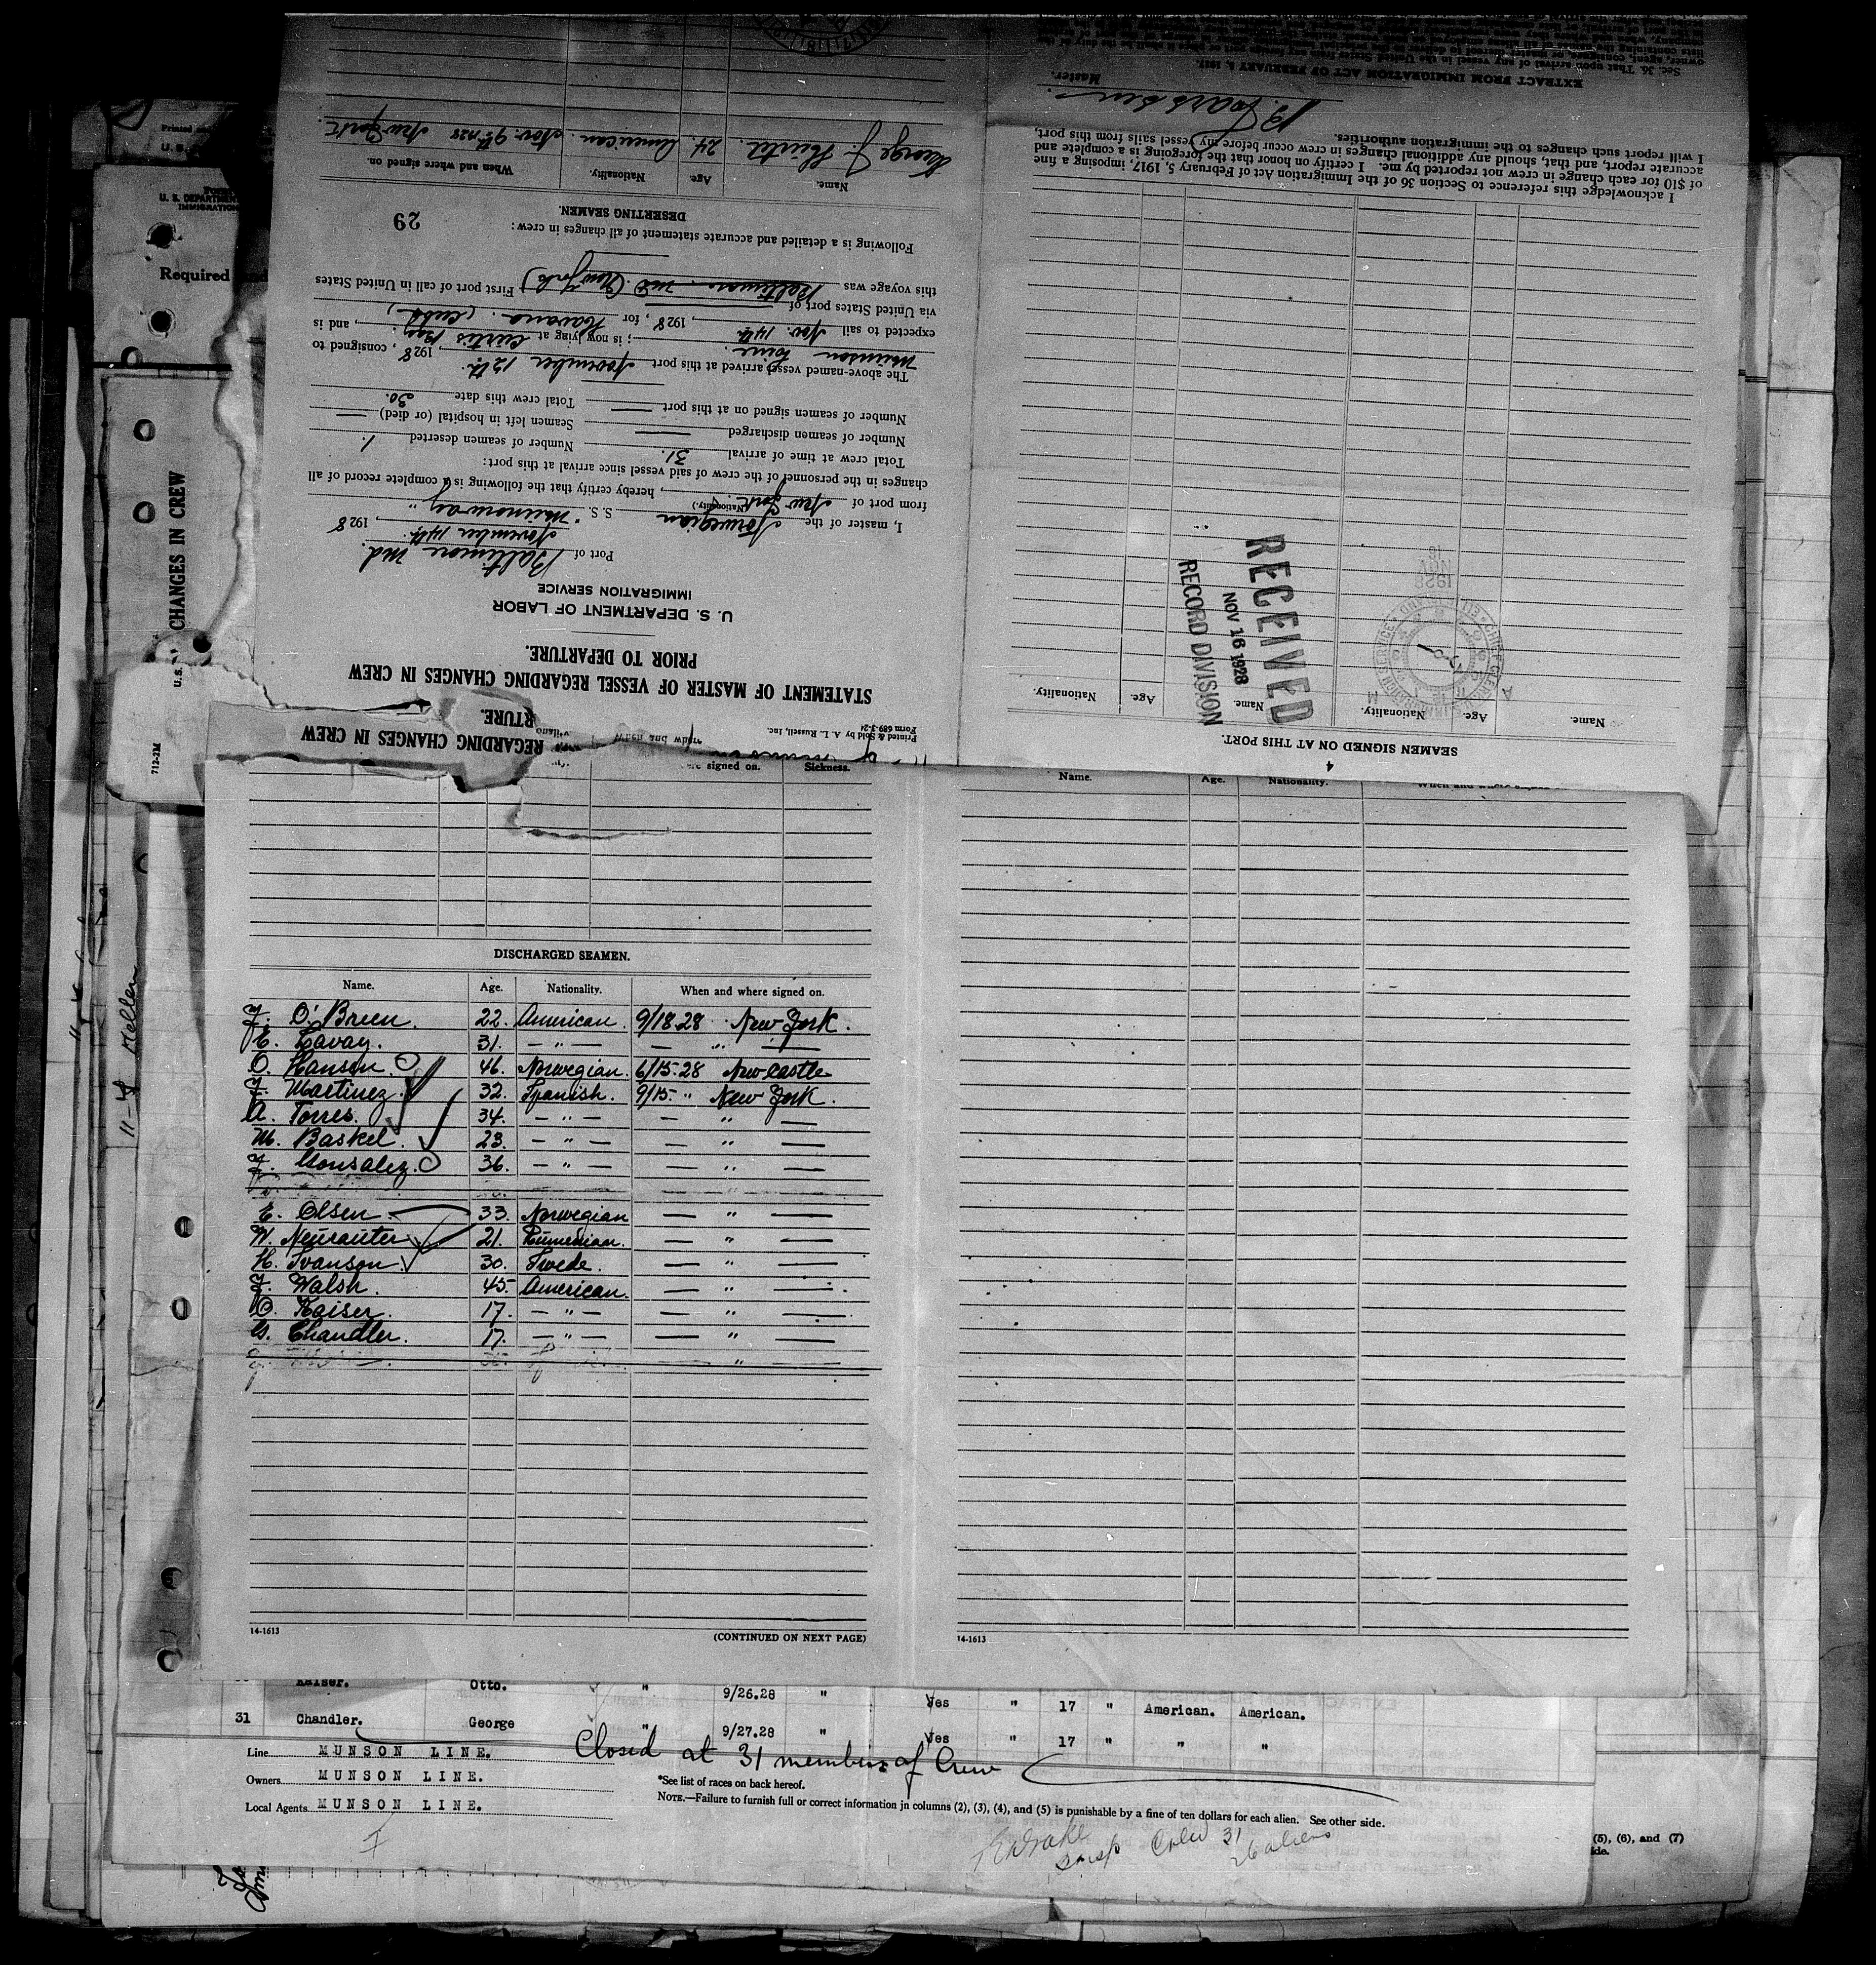 EXTRACT FROM IMMIGRATION ACT OF FEBRUARY 5, 1917.
Sec. 36. That upon arrival of any vessel in the United States
Master.
I acknowledge this reference to Section 36 of the Immigration Act of February 5, 1917, imposing a fine
of $10 for each change in crew not reported by me. I certify on honor that the foregoing is a complete and
accurate report, and that, should any additional changes in crew occur before my vessel sails from this port,
I will report such changes to the immigration authorities.
SEAMEN SIGNED ON AT THIS PORT.
Name. Age. Nationality. Name. Age. Nationality.
4
RECEIVED
NOV 16 1928
RECORD DIVISION
Printed & Sold by A. L. Russell, Inc.
Form 689-3-24
STATEMENT OF MASTER OF VESSEL REGARDING CHANGES IN CREW
PRIOR TO DEPARTURE.
U. S. DEPARTMENT OF LABOR
IMMIGRATION SERVICE
Port of Baltimore Md.
November 14th, 1928
I, master of the Norwegian S. S. "Munorway"
(Nationality.)
from port of New York, hereby certify that the following is a complete record of all
changes in the personnel of the crew of said vessel since arrival at this port:
Total crew at time of arrival 31. Number of seamen deserted 1.
Number of seamen discharged — Seamen left in hospital (or died) —
Number of seamen signed on at this port — Total crew this date 30.
The above-named vessel arrived at this port November 12th, 1928, consigned to
Munson Line; is now lying at Curtis Bay, and is
expected to sail Nov. 14th, 1928, for Havana (Cuba),
via United States port of
this voyage was Baltimore Md. (New York) First port of call in United States
Following is a detailed and accurate statement of all changes in crew:
29
DESERTING SEAMEN.
Name. Age. Nationality. When and where signed on.
George J. 24. American. Nov. 9th 1928 New York.
Printed
U. S.
U. S. DEPARTMENT
IMMIGRATION
Required
U. S.
CHANGES IN CREW
712-2M
REGARDING CHANGES IN CREW
RTURE.
signed on. Sickness.
Name. Age. Nationality.
DISCHARGED SEAMEN.
Name. Age. Nationality. When and where signed on.
J. O'Brien. 22. American. 9/18.28 New York.
E. Lavay. 31. — " — — " —
O. Hansen. 46. Norwegian. 6/15.28 Newcastle
J. Martinez. 32. Spanish. 9/15. " New York.
A. Torres. 34. — " — — " —
M. Baskel. 23. — " — — " —
J. Gonsalez. 36. — " — — " —
E. Olsen 33. Norwegian — " —
W. Neurauter 21. Rumenian. — " —
H. Svanson 30. Swede. — " —
J. Walsh. 45. American. — " —
O. Kaiser. 17. — " — — " —
G. Chandler. 17. — " — — " —
14-1613
(CONTINUED ON NEXT PAGE)
14-1613
Kaiser. Otto. " 9/26.28 " Yes " 17 " American. American.
31 Chandler. George " 9/27.28 " Yes " 17 " " "
Closed at 31 members of Crew
Line MUNSON LINE.
Owners MUNSON LINE.
Local Agents MUNSON LINE.
*See list of races on back hereof.
NOTE.—Failure to furnish full or correct information in columns (2), (3), (4), and (5) is punishable by a fine of ten dollars for each alien. See other side.
Insp
31
26 aliens
(5), (6), and (7)
ide.